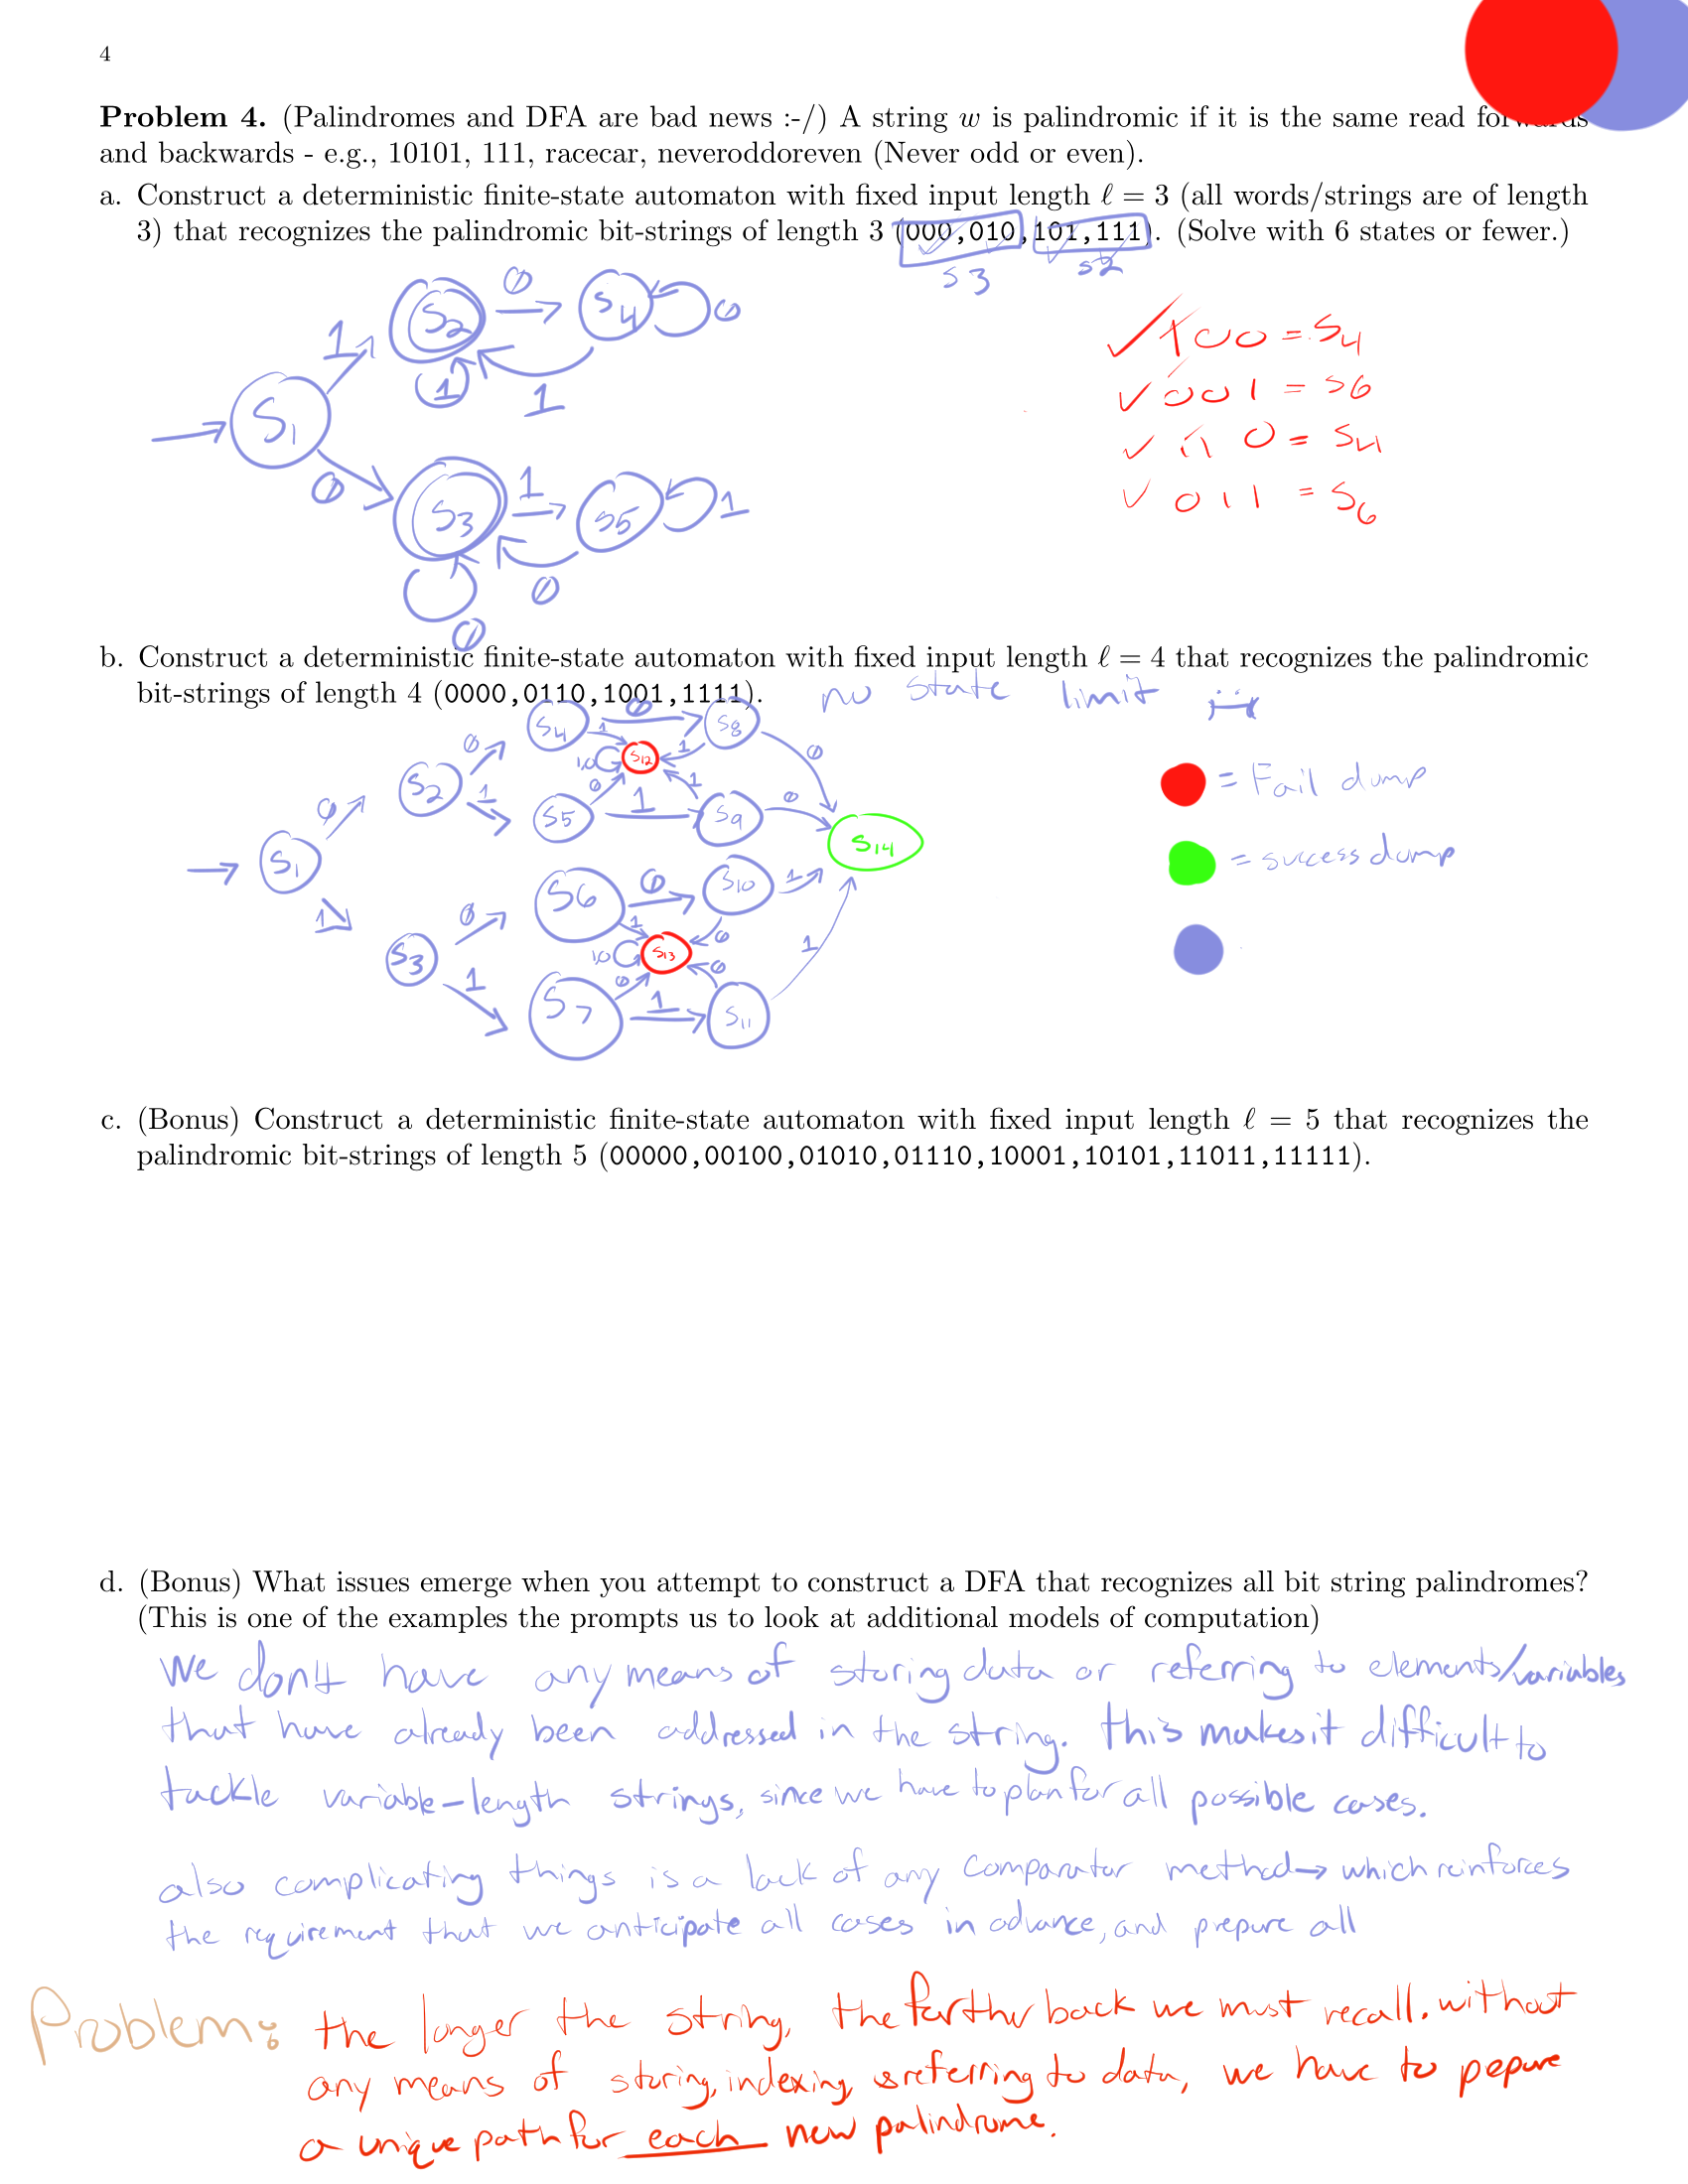 4
Problem 4. (Palindromes and DFA are bad news :-/) A string w is palindromic if it is the same read forwards
and backwards - e.g., 10101, 111, racecar, neveroddoreven (Never odd or even).
a. Construct a deterministic finite-state automaton with fixed input length ℓ = 3 (all words/strings are of length
3) that recognizes the palindromic bit-strings of length 3 (000,010,101,111). (Solve with 6 states or fewer.)
S3 S2
1 S2 0 S4 0
1 1
S1
0 S3 1 S5 1
0
0
100 = S4
001 = S6
110 = S4
011 = S6
b. Construct a deterministic finite-state automaton with fixed input length ℓ = 4 that recognizes the palindromic
bit-strings of length 4 (0000,0110,1001,1111).
no state limit
S4 0 S8
1 1 0
0 S2 0 1,0 S12
1 S5 0 1 1 S9 0
S1 S14
1 S3 0 S6 0 S10 1
1 0
1,0 S13
1 S7 0 1 0 S11 1
= Fail dump
= success dump
c. (Bonus) Construct a deterministic finite-state automaton with fixed input length ℓ = 5 that recognizes the
palindromic bit-strings of length 5 (00000,00100,01010,01110,10001,10101,11011,11111).
d. (Bonus) What issues emerge when you attempt to construct a DFA that recognizes all bit string palindromes?
(This is one of the examples the prompts us to look at additional models of computation)
We don't have any means of storing data or referring to elements/variables
that have already been addressed in the string. this makes it difficult to
tackle variable-length strings, since we have to plan for all possible cases.
also complicating things is a lack of any comparator method → which reinforces
the requirement that we anticipate all cases in advance, and prepare all
Problem: the longer the string, the farther back we must recall. without
any means of storing, indexing, & referring to data, we have to pepare
a unique path for each new palindrome.